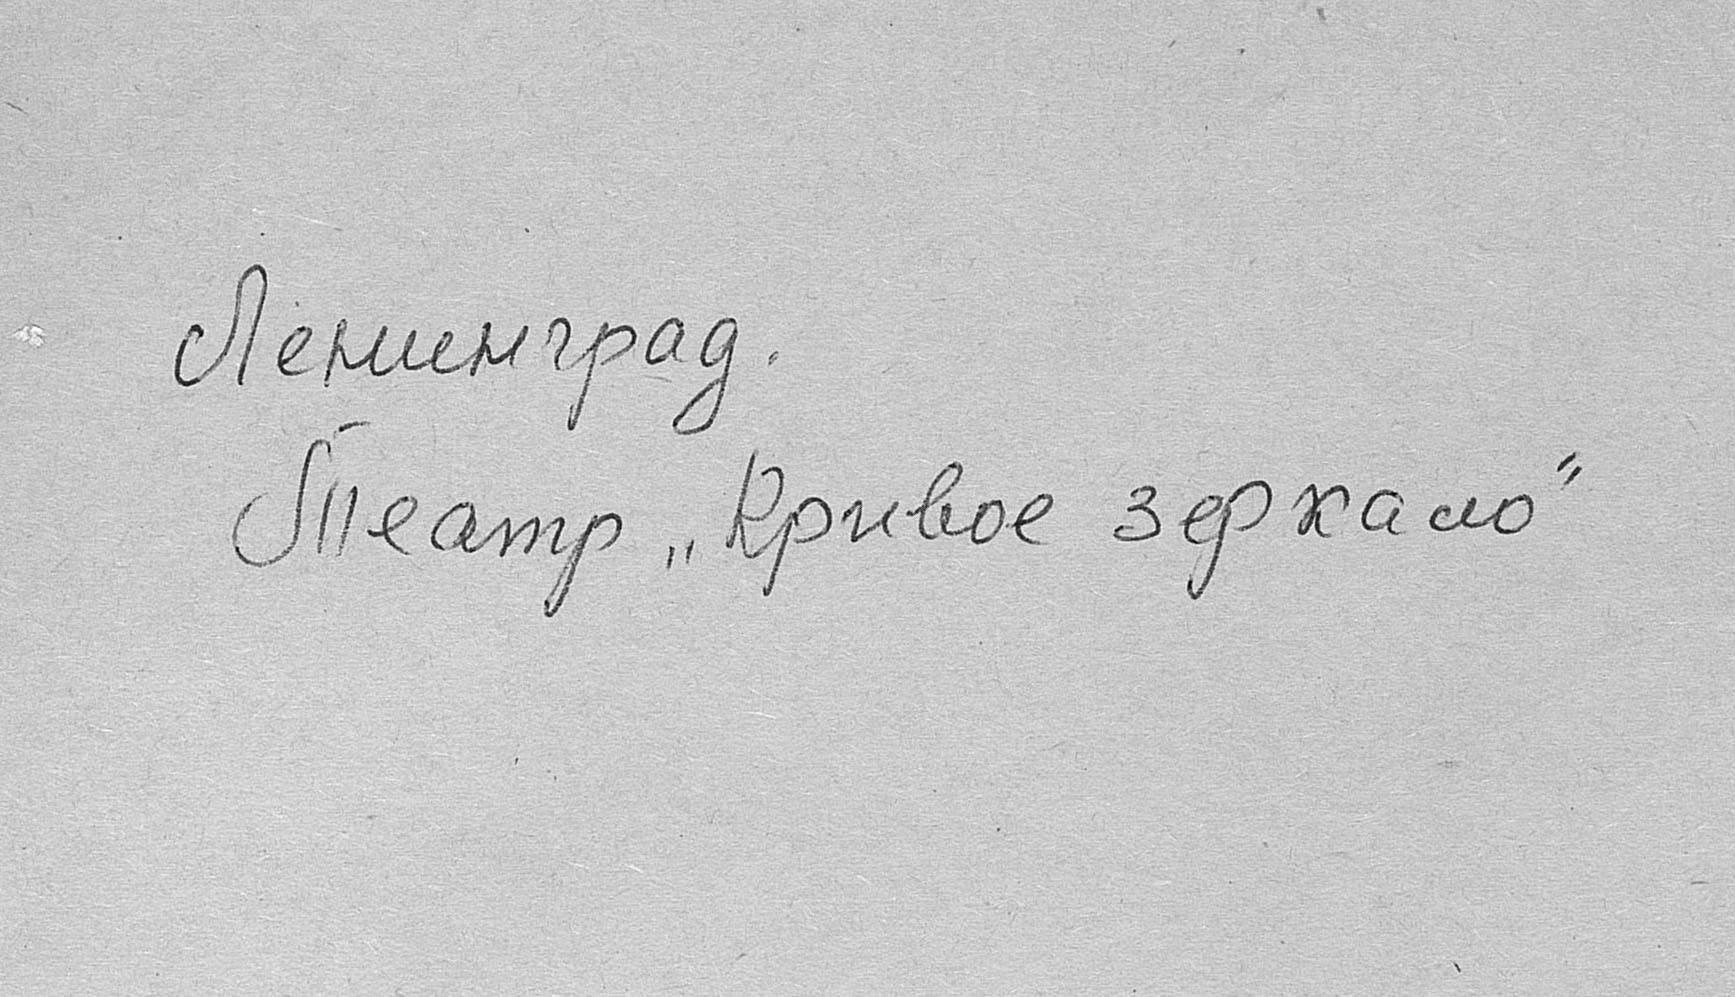 Ленинград.
Театр „Кривое зеркало“